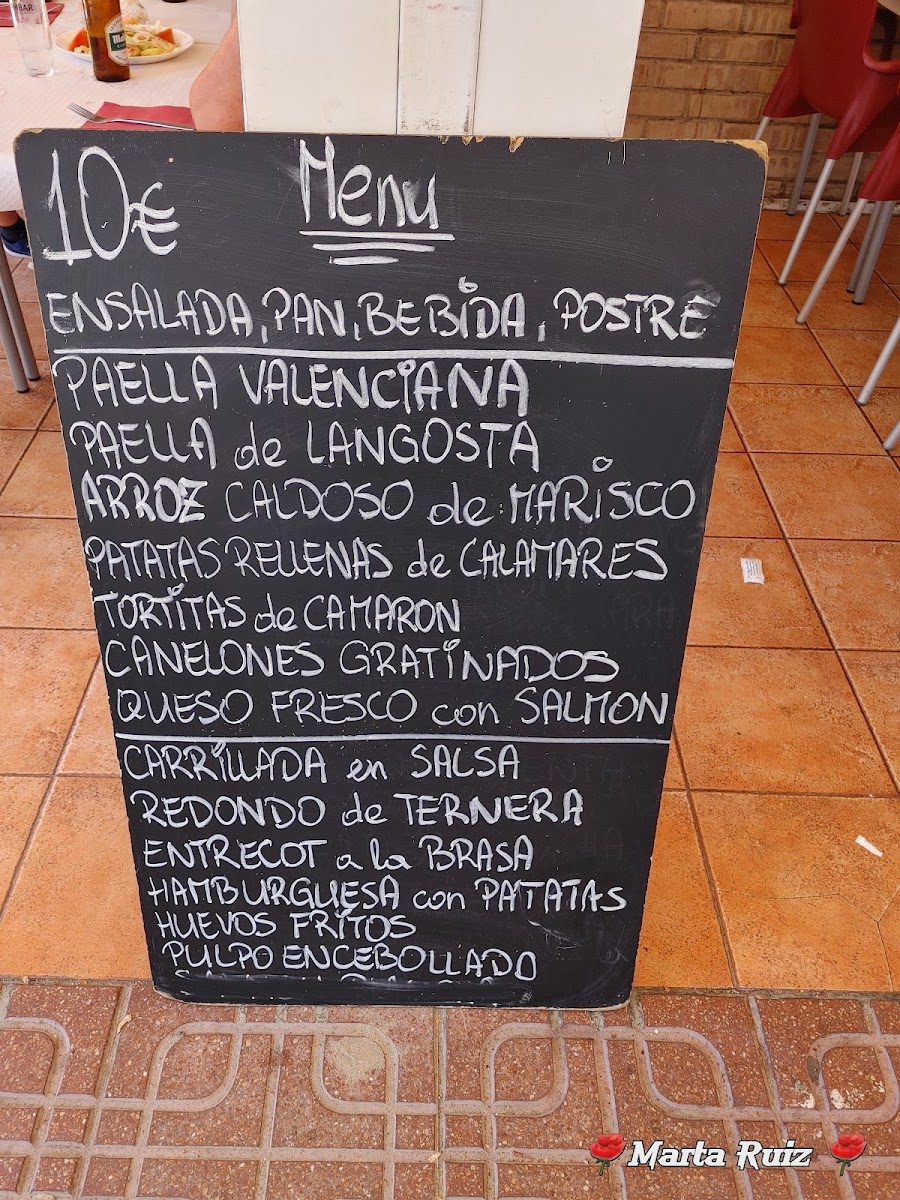 10€ Menu
ENSALADA, PAN, BEBIDA, POSTRE
PAELLA VALENCIANA
PAELLA de LANGOSTA
ARROZ CALDOSO de MARISCO
PATATAS RELLENAS de CALAMARES
TORTITAS de CAMARON
CANELONES GRATINADOS
QUESO FRESCO con SALMON
CARRILLADA en SALSA
REDONDO de TERNERA
ENTRECOT a la BRASA
HAMBURGUESA con PATATAS
HUEVOS FRITOS
PULPO ENCEBOLLADO
Marta Ruiz